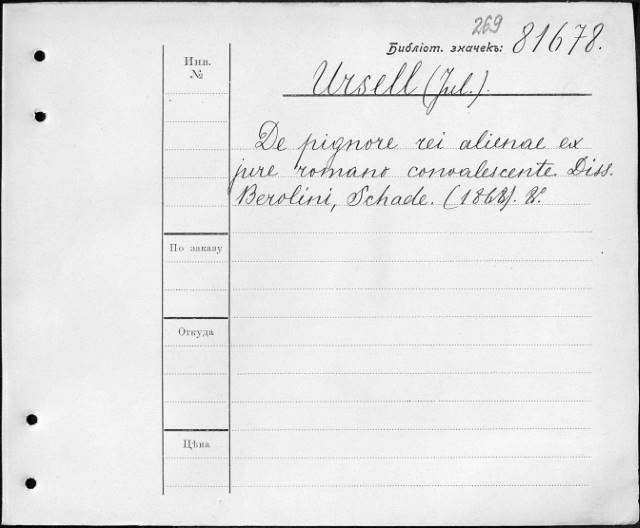 269
Библіот. значекъ: 81678.
Инв.
№
Ursell (Jul.).
De pignore rei alienae ex
jure romano convalescente. Diss.
Berolini, Schade. (1862).
По заказу
Откуда
Цѣна